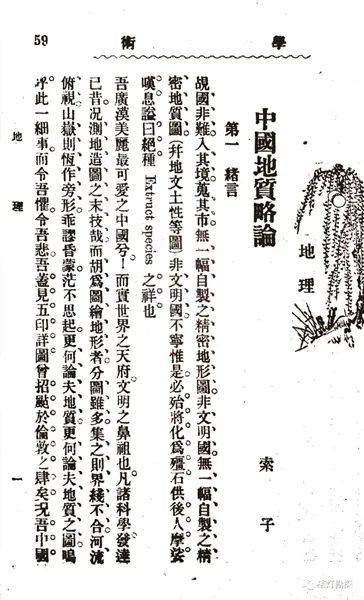 學術
59
地理
中國地質略論
索子
第一 緒言
覘國非難入其境蒐其市無一幅自製之精密地形圖非文明國無一幅自製之精
密地質圖(幷地文土性等圖)非文明國不寧惟是必殆將化爲殭石供後人摩挲
嘆息謚曰絕種 Extruct species 之祥也
吾廣漠美麗最可愛之中國兮!而實世界之天府文明之鼻祖也凡諸科學發達
已昔况測地造圖之末技哉而胡爲圖繪地形者分圖雖多集之則界綫不合河流
俯視山嶽則恆作旁形乖謬昏蒙茫不思起更何論夫地質更何論夫地質之圖嗚
呼此一細事而令吾懼令吾悲吾蓋見五印詳圖曾招颭於倫敦之肆矣况吾中國
地理
一